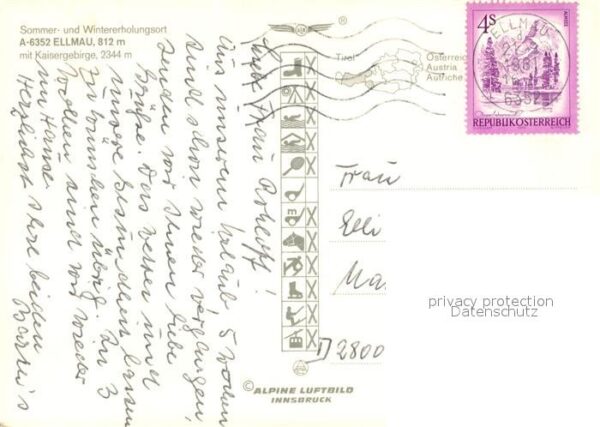 Sommer- und Wintererholungsort
A-6352 ELLMAU, 812 m
mit Kaisergebirge, 2344 m
Tirol
Österreich
Austria
Autriche
4s
ELLMAU
1981
6352
REPUBLIK ÖSTERREICH
Liebe Frau Rohloff!
Aus unserem Urlaub 5 Wochen
sind schon wieder vergangen,
senden wir Ihnen liebe
Grüße. Das Wetter und
unsere Gesundheit lassen
zu wünschen übrig. In 3
Wochen sind wir wieder
im Hause.
Herzlichst Ihre beiden
Frau
Elli
Ma
D 2800
privacy protection
Datenschutz
© ALPINE LUFTBILD
INNSBRUCK